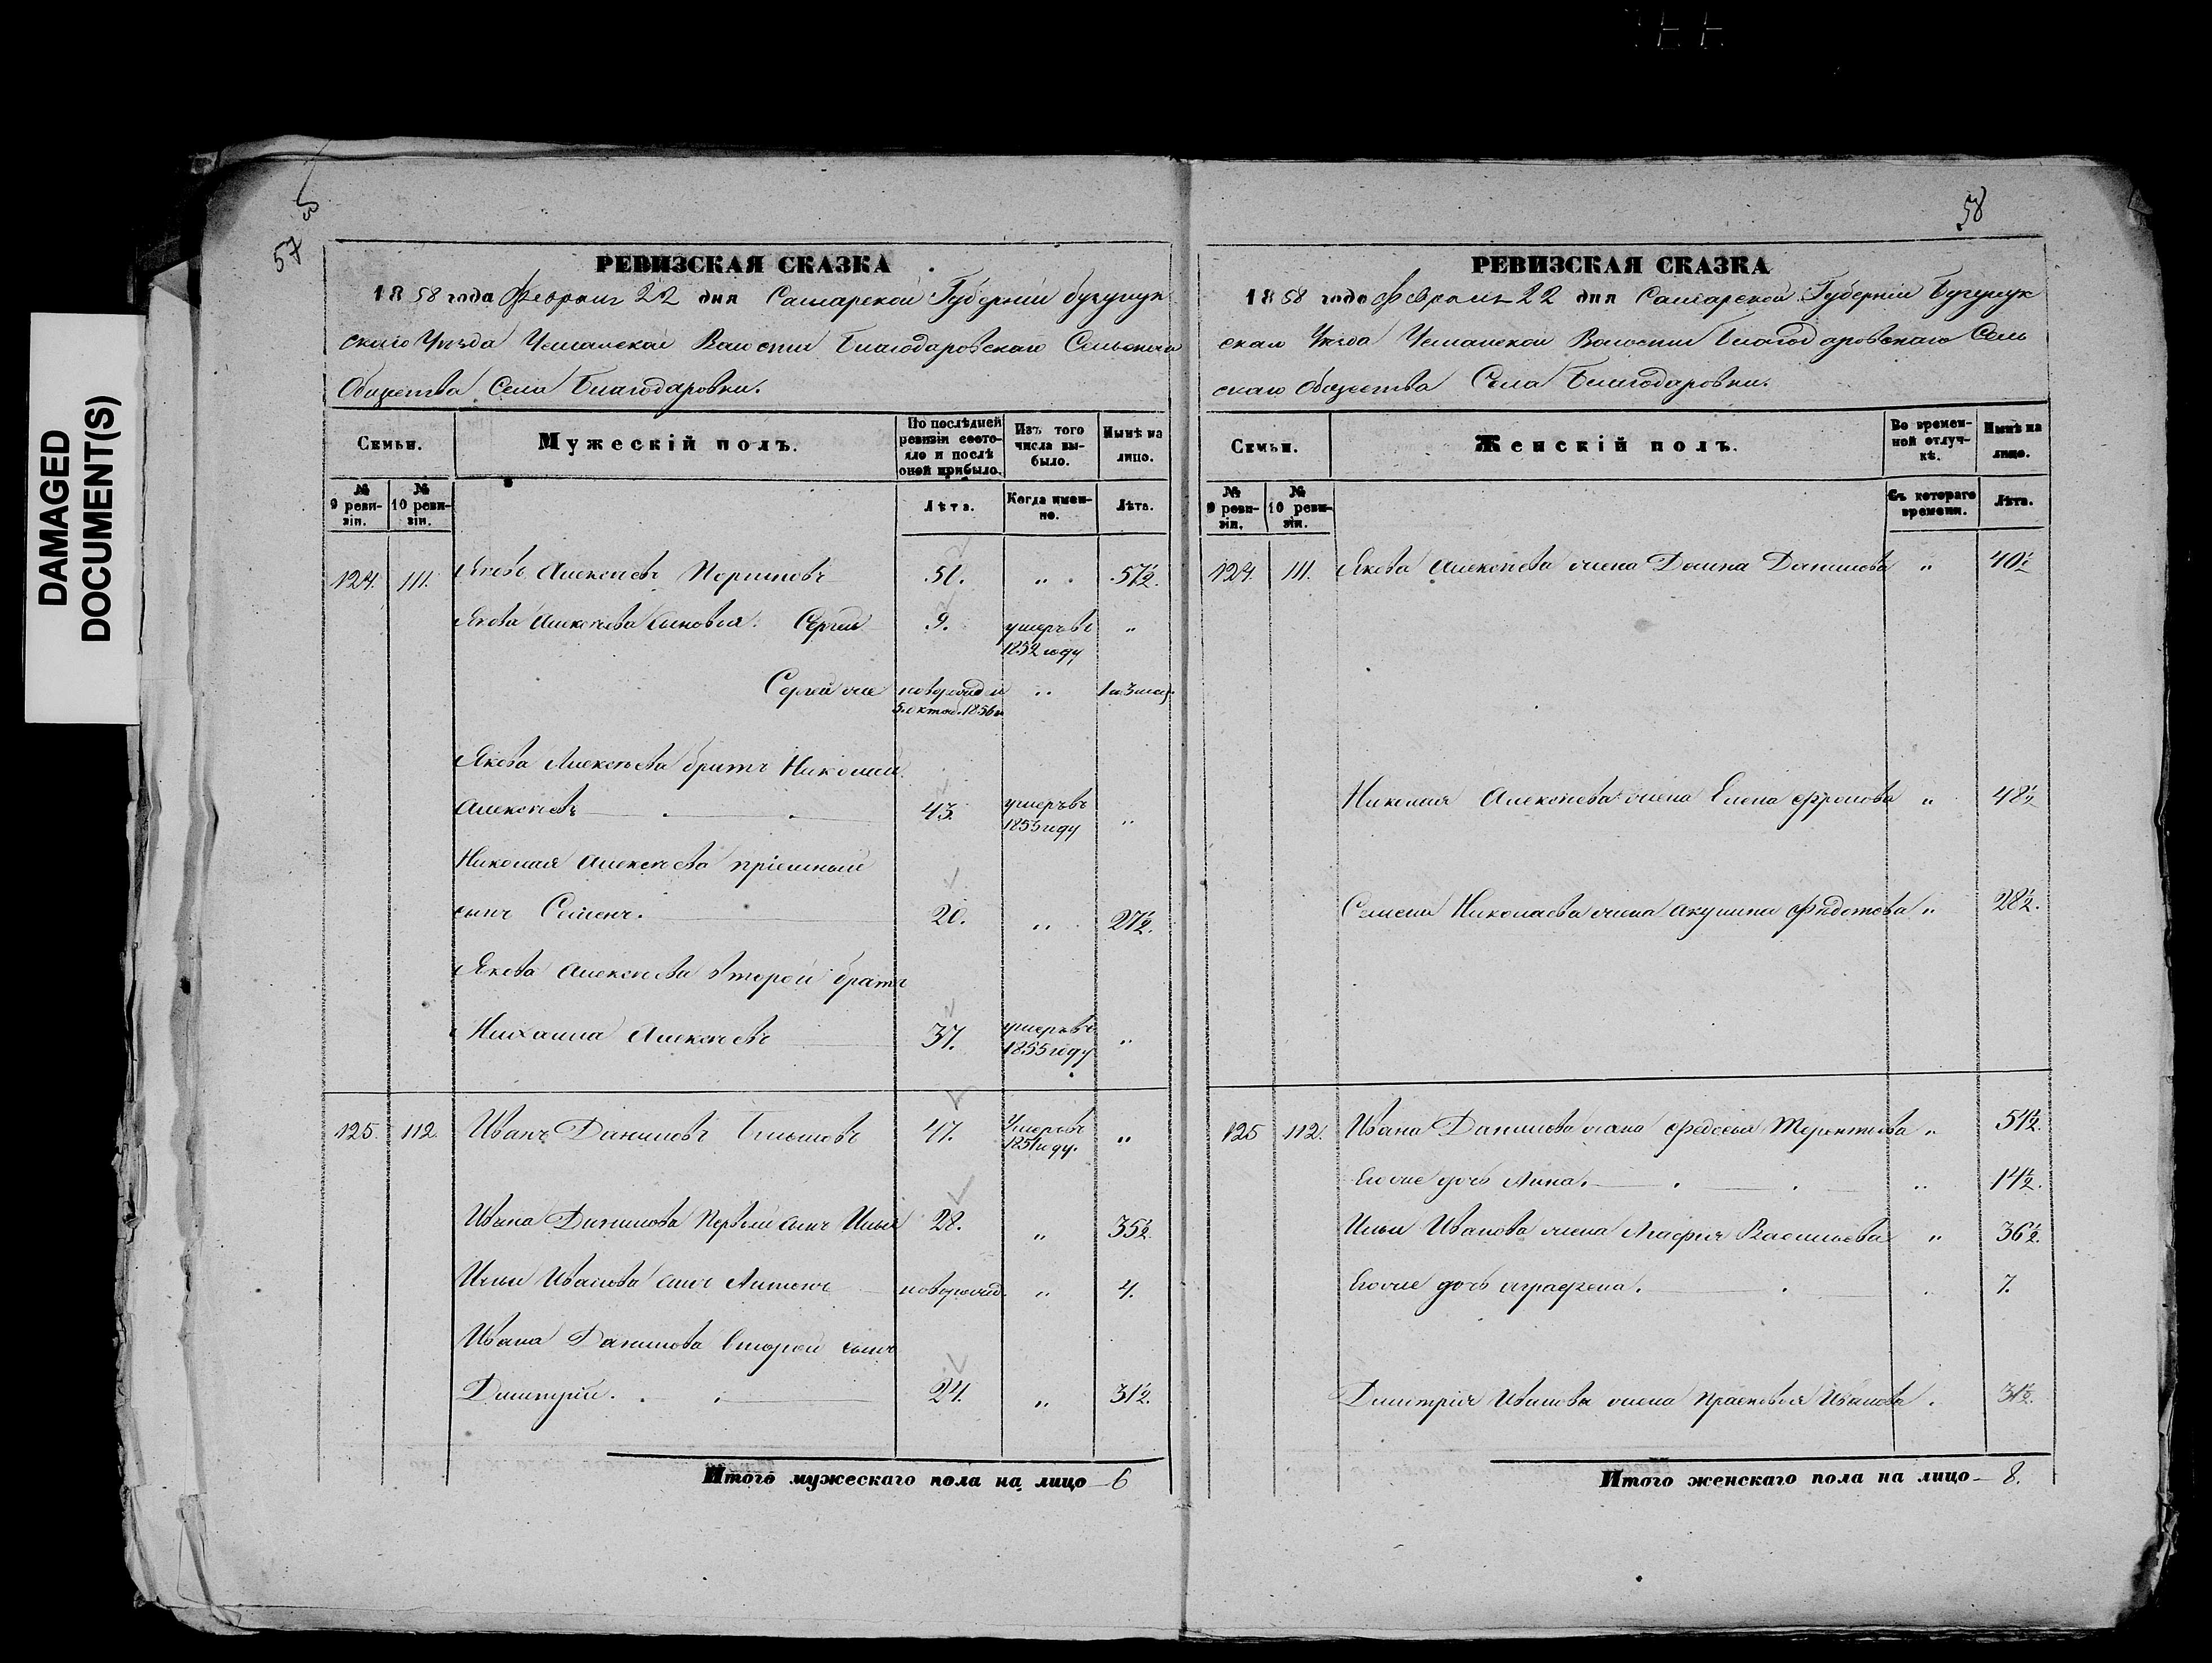 DAMAGED
DOCUMENT(S)
57
РЕВИЗСКАЯ СКАЗКА
1858 года Февраля 22 дня Самарской Губернiи Бугурук
скаго Уѣзда Волости Благодаровскаго Сельскаго
Общества Села Благодаровки.
Семьи.
Мужескiй полъ.
По послѣдней ревизiи состояло и послѣ оной прибыло.
Изъ того числа выбыло.
Нынѣ на лицо.
№ 9 ревизiи.
№ 10 ревизiи.
Лѣта.
Когда именно.
Лѣта.
124. 111. Яковъ Алексѣевъ 51. " 57½.
Якова Алексѣева сыновья. Сергѣй 9. умеръ въ 1852 году "
Сергѣй же новорожден 5 октяб. 1856 г. "
Якова Алексѣева братъ Николай
Алексѣевъ 43. умеръ въ 1855 году "
Николая Алексѣева прiемный
сынъ Семенъ. 20. " 27½.
Якова Алексѣева второй братъ
Михаила Алексѣевъ 37. умеръ въ 1855 году "
125. 112. Иванъ Даниловъ 47. Умеръ въ 1851 году. "
Ивана Данилова первый сынъ Илья 28. " 35½.
Ильи Иванова сынъ Антонъ новорожд. " 4.
Ивана Данилова второй сынъ
Дмитрiй. 24. " 31½.
Итого мужескаго пола на лицо 6
58
РЕВИЗСКАЯ СКАЗКА
1858 года Февраля 22 дня Самарской Губернiи Бугурук
скаго Уѣзда Волости Благодаровскаго Сель
скаго Общества Села Благодаровки.
Семьи.
Женскiй полъ.
Во временной отлучкѣ.
Нынѣ на лицо.
№ 9 ревизiи.
№ 10 ревизiи.
Съ котораго времени.
Лѣта.
124. 111. Якова Алексѣева жена Домна Данилова " 40½
Николая Алексѣева жена Елена Фролова " 48½
Семена Николаева жена Акулина Федотова " 28½.
125 112. Ивана Данилова жена Федосья Терентьева " 51½.
Его же дочь Анна. " 14½.
Ильи Иванова жена Васильева " 36½.
Его же дочь Аграфена. 7.
Дмитрiя Иванова жена Прасковья Иванова 31½.
Итого женскаго пола на лицо 8.